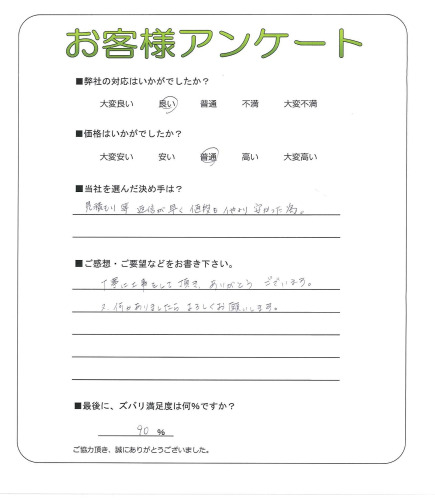 お客様アンケート
■弊社の対応はいかがでしたか？
大変良い 良い 普通 不満 大変不満
■価格はいかがでしたか？
大変安い 安い 普通 高い 大変高い
■当社を選んだ決め手は？
見積もり等 返信が早く価格も他より安かった為。
■ご感想・ご要望などをお書き下さい。
丁寧に工事をして頂き、ありがとうございます。
又、何かありましたらよろしくお願いします。
■最後に、ズバリ満足度は何%ですか？
90 %
ご協力頂き、誠にありがとうございました。